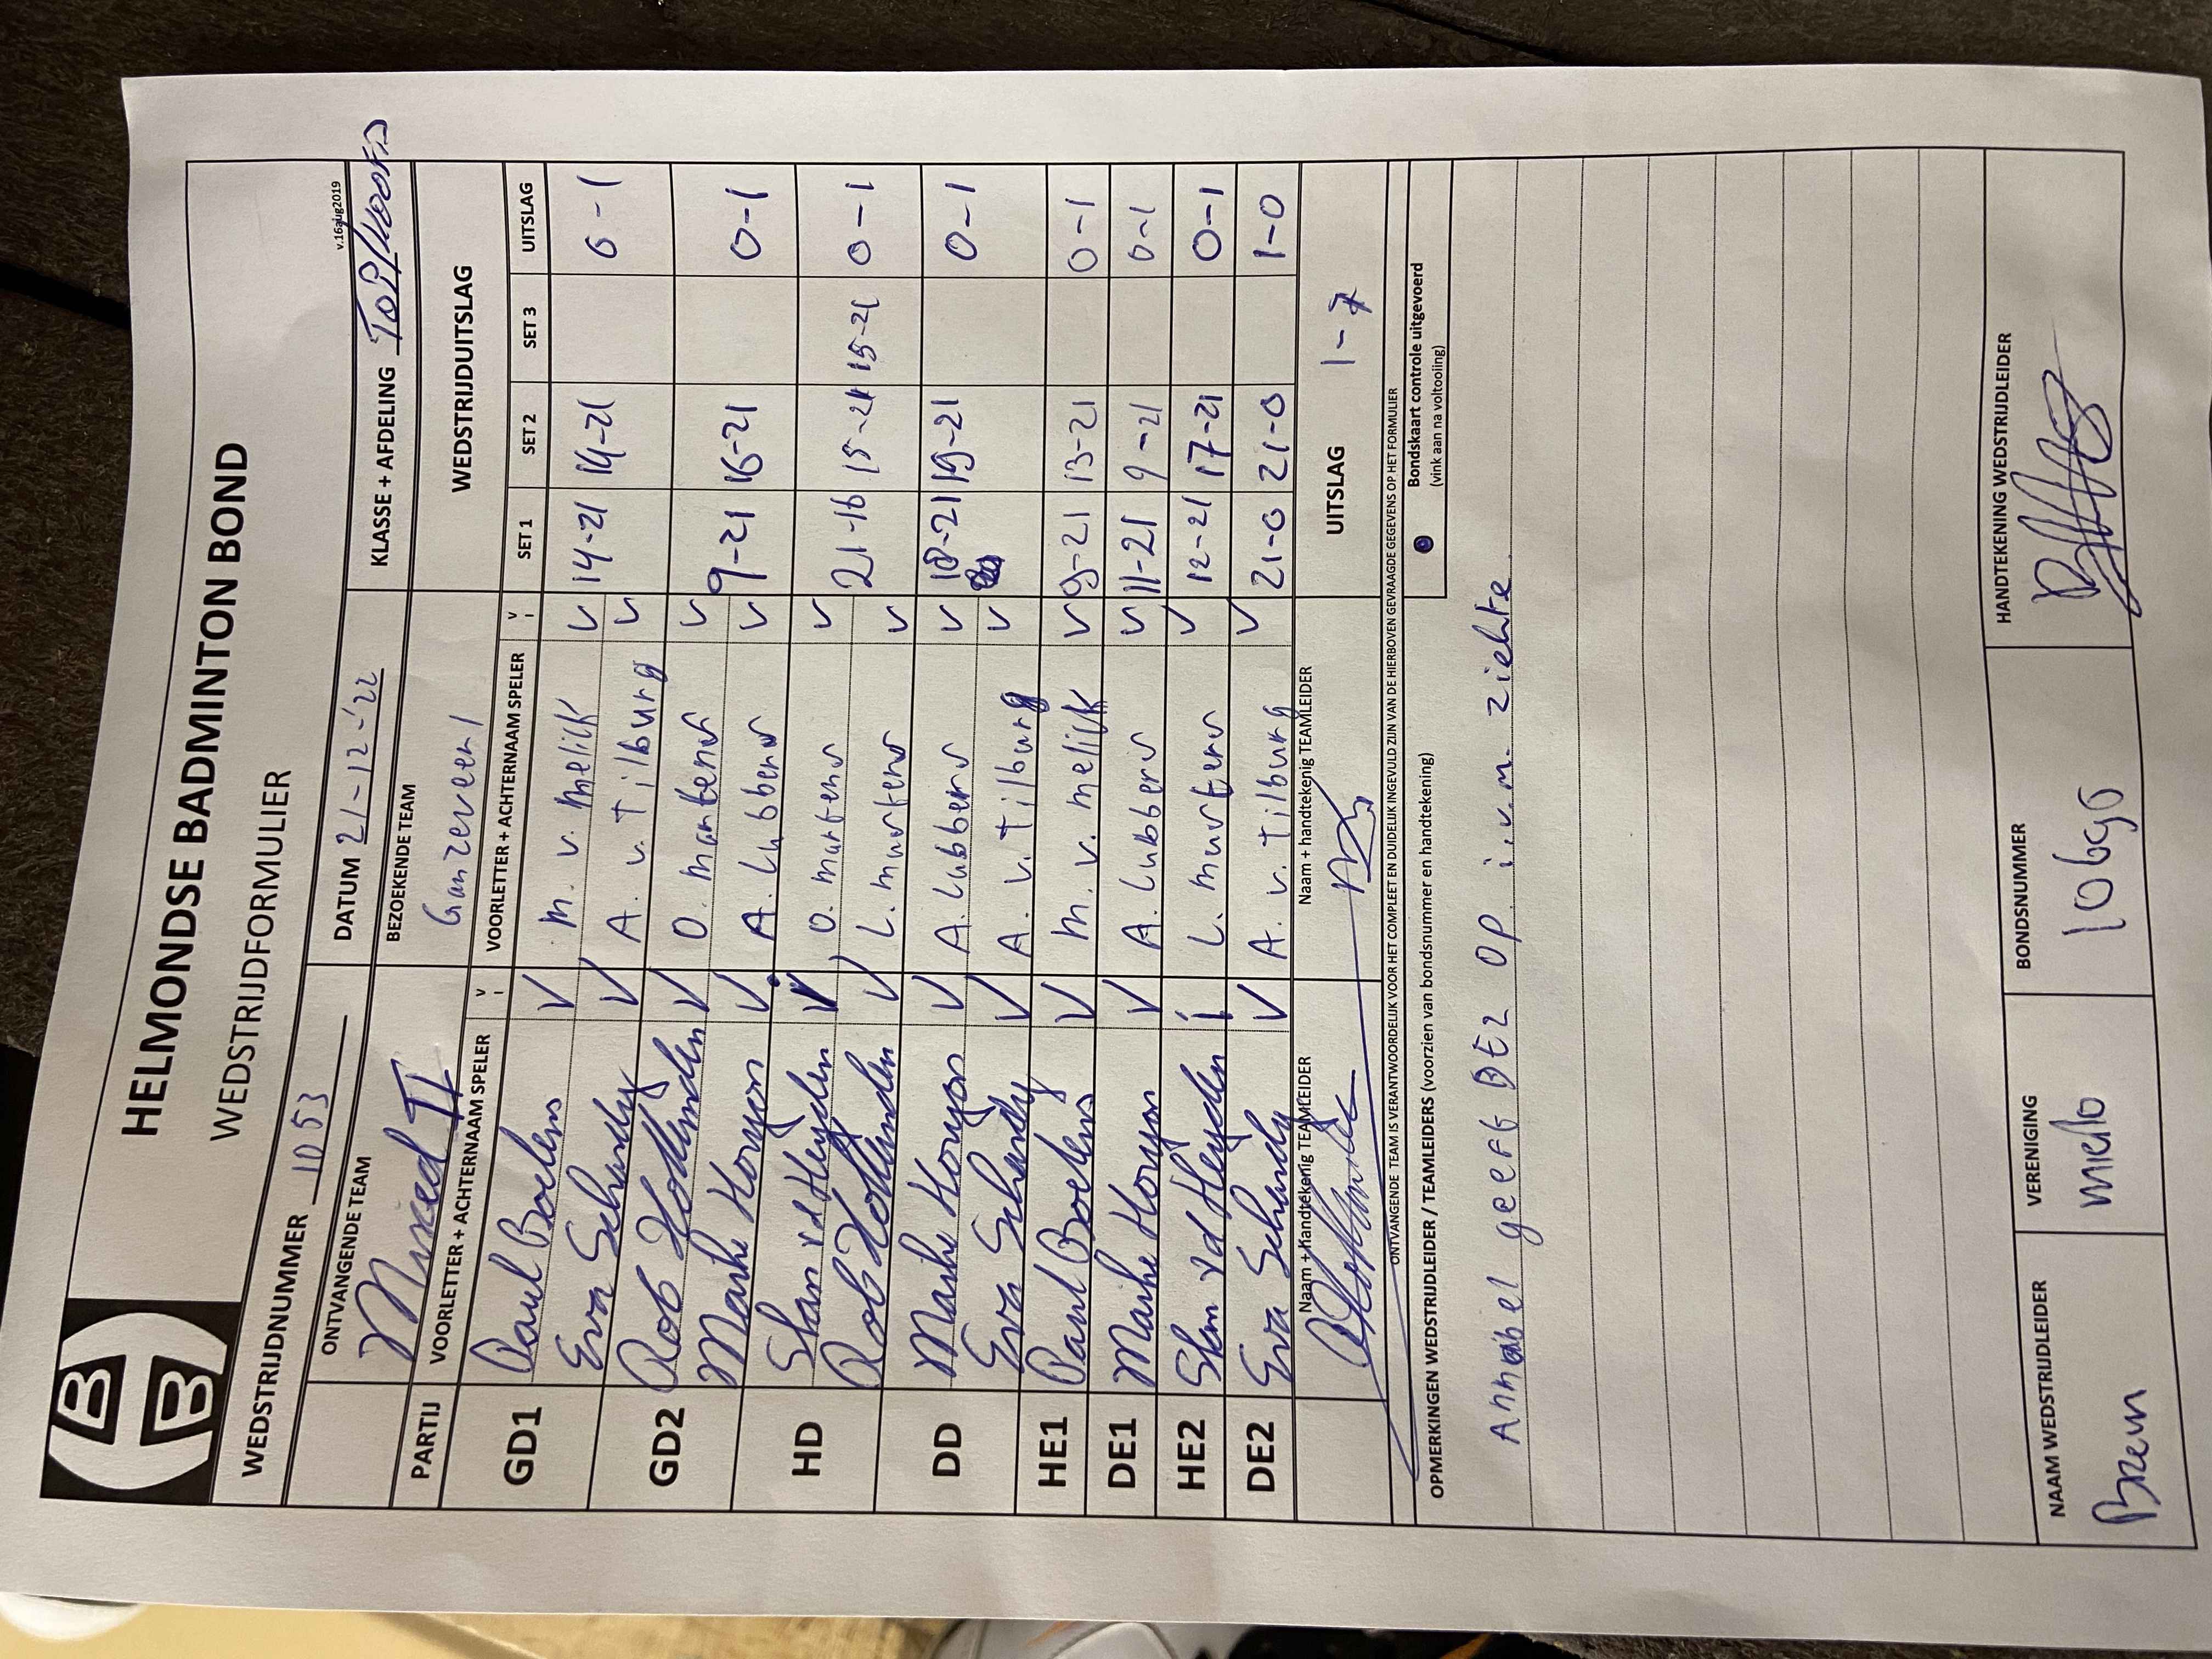 HELMONDSE BADMINTON BOND
WEDSTRIJDFORMULIER
v.16aug2019
WEDSTRIJDNUMMER 1053 DATUM 21-12-'22 KLASSE + AFDELING
ONTVANGENDE TEAM BEZOEKENDE TEAM
Mixed II Ganzeveen 1 WEDSTRIJDUITSLAG
PARTIJ VOORLETTER + ACHTERNAAM SPELER V I VOORLETTER + ACHTERNAAM SPELER V I SET 1 SET 2 SET 3 UITSLAG
GD1 Paul Boelens V M. v. Melick V 14-21 14-21 0-1
Eva Schandy V A. v. Tilburg V
GD2 Rob Hollanden V O. martens V 9-21 16-21 0-1
Maike Konyon V A. Lubbers V
HD Stan vd Heyden V O. martens V 21-16 15-21 15-21 0-1
Rob Hollanden V L. martens V
DD Maike Konyon V A. Lubbers V 18-21 19-21 0-1
Eva Schandy V A. v. Tilburg V
HE1 Paul Boelens V M. v. melick V 9-21 13-21 0-1
DE1 Maike Konyon V A. Lubbers V 11-21 9-21 0-1
HE2 Stan vd Heyden i L. martens V 12-21 17-21 0-1
DE2 Eva Schandy V A. v. Tilburg V 21-0 21-0 1-0
Naam + handtekenig TEAMLEIDER Naam + handtekenig TEAMLEIDER UITSLAG 1-7
ONTVANGENDE TEAM IS VERANTWOORDELIJK VOOR HET COMPLEET EN DUIDELIJK INGEVULD ZIJN VAN DE HIERBOVEN GEVRAAGDE GEGEVENS OP HET FORMULIER
OPMERKINGEN WEDSTRIJDLEIDER / TEAMLEIDERS (voorzien van bondsnummer en handtekening) Bondskaart controle uitgevoerd
(vink aan na voltooling)
Annabel geeft DE2 op i.v.m. ziekte
NAAM WEDSTRIJDLEIDER VERENIGING BONDSNUMMER HANDTEKENING WEDSTRIJDLEIDER
Bram mielo 10690